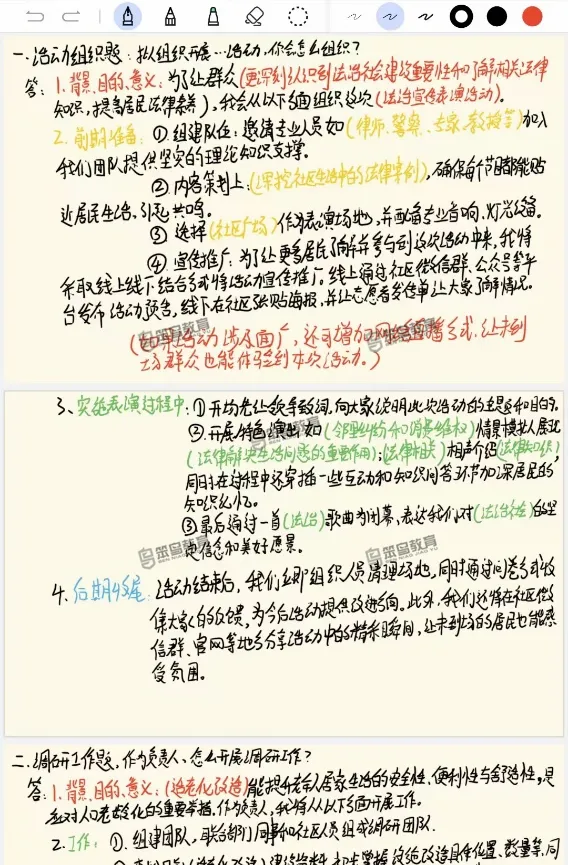 一.活动组织题:拟组织开展…活动,你会怎么组织?
答:1.背景.目的.意义:为了让群众(更深刻认识到法治社会建设重要性和了解相关法律
知识,提高居民法律素养),我会从以下方面组织这次(法治宣传表演活动).
2.前期准备:①组建队伍:邀请专业人员如(律师、警察、专家、教授等)加入
我们团队提供坚实的理论知识支撑.
②内容策划上:(深挖社区生活中的法律案例),确保每个节目都能贴
近居民生活,引起共鸣.
③选择(社区广场)作为表演场地,并配备专业音响、灯光设备.
④宣传推广:为了让更多居民了解并参与到这次活动中来,我将
采取线上线下结合方式将活动宣传推广.线上通过社区微信群、公众号等平
台发布活动预告,线下在社区张贴海报,并让志愿者发传单让大家了解情况.
(如果活动涉及面广,还可增加网络直播方式,让未到
场群众也能体验到本次活动.)
笨鸟教育
笨鸟教育
3、实施表演过程中:①开场先让领导致词,向大家说明此次活动的主题和目的.
②.开展特色演出如(邻里纠纷和消费维权)情景模拟展现
(法律解决生活问题的重要作用);(法律相关)相声介绍(法律知识),
同时在过程中还穿插一些互动和知识问答环节加深居民的
知识记忆.
③最后通过一首(法治)歌曲为闭幕,表达我们对(法治社会)的坚
定信念和美好愿景.
笨鸟教育
笨鸟教育
笨鸟教育
4、后期收尾:活动结束后,我们立即组织人员清理场地,同时通过问卷方式收
集大家的反馈,为今后活动提供改进方向.此外,我们还将在社区微
信群、官网等地方分享活动中的精彩瞬间,让未到场的居民也能感
受氛围.
二.调研工作题,作为负责人、怎么开展调研工作?
答:1.背景.目的.意义:(适老化改造)能提升老年人居家生活的安全性、便利性与舒适性,是
应对人口老龄化的重要举措.作为负责人,我将从以下方面开展工作.
2.工作:①.组建团队,联合部门同事和社区人员组成调研团队.